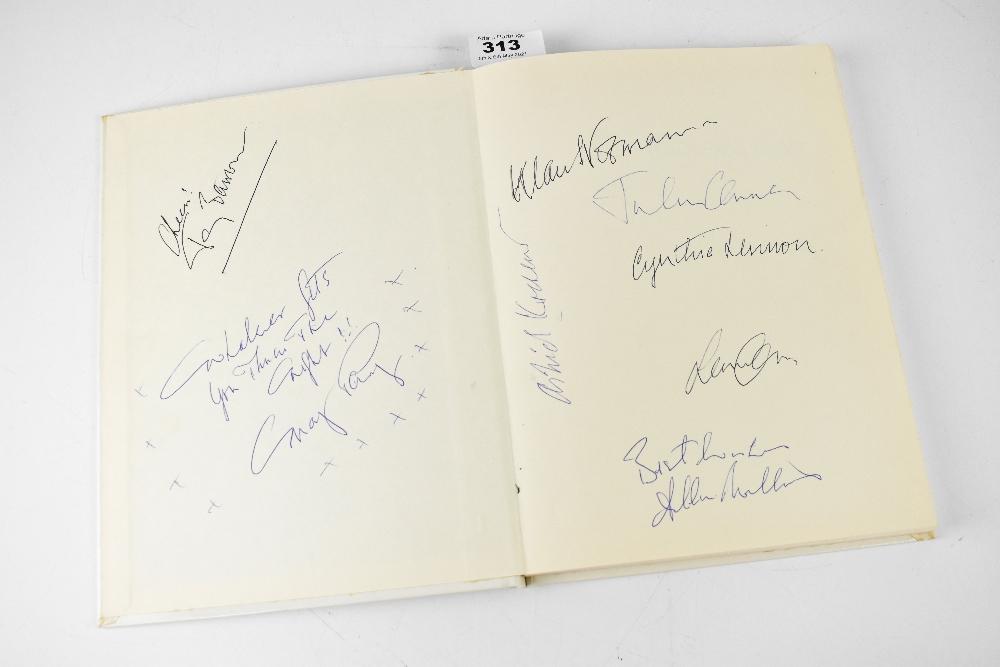 313
Cheers!
Tony Barrow
Whatever Gets
You Thru The
Night !!
May Pang
x x x x x x x x x x x x
Klaus Voormann
Julian Lennon
Cynthia Lennon
Astrid Kirchherr
Best wishes
Allan Williams